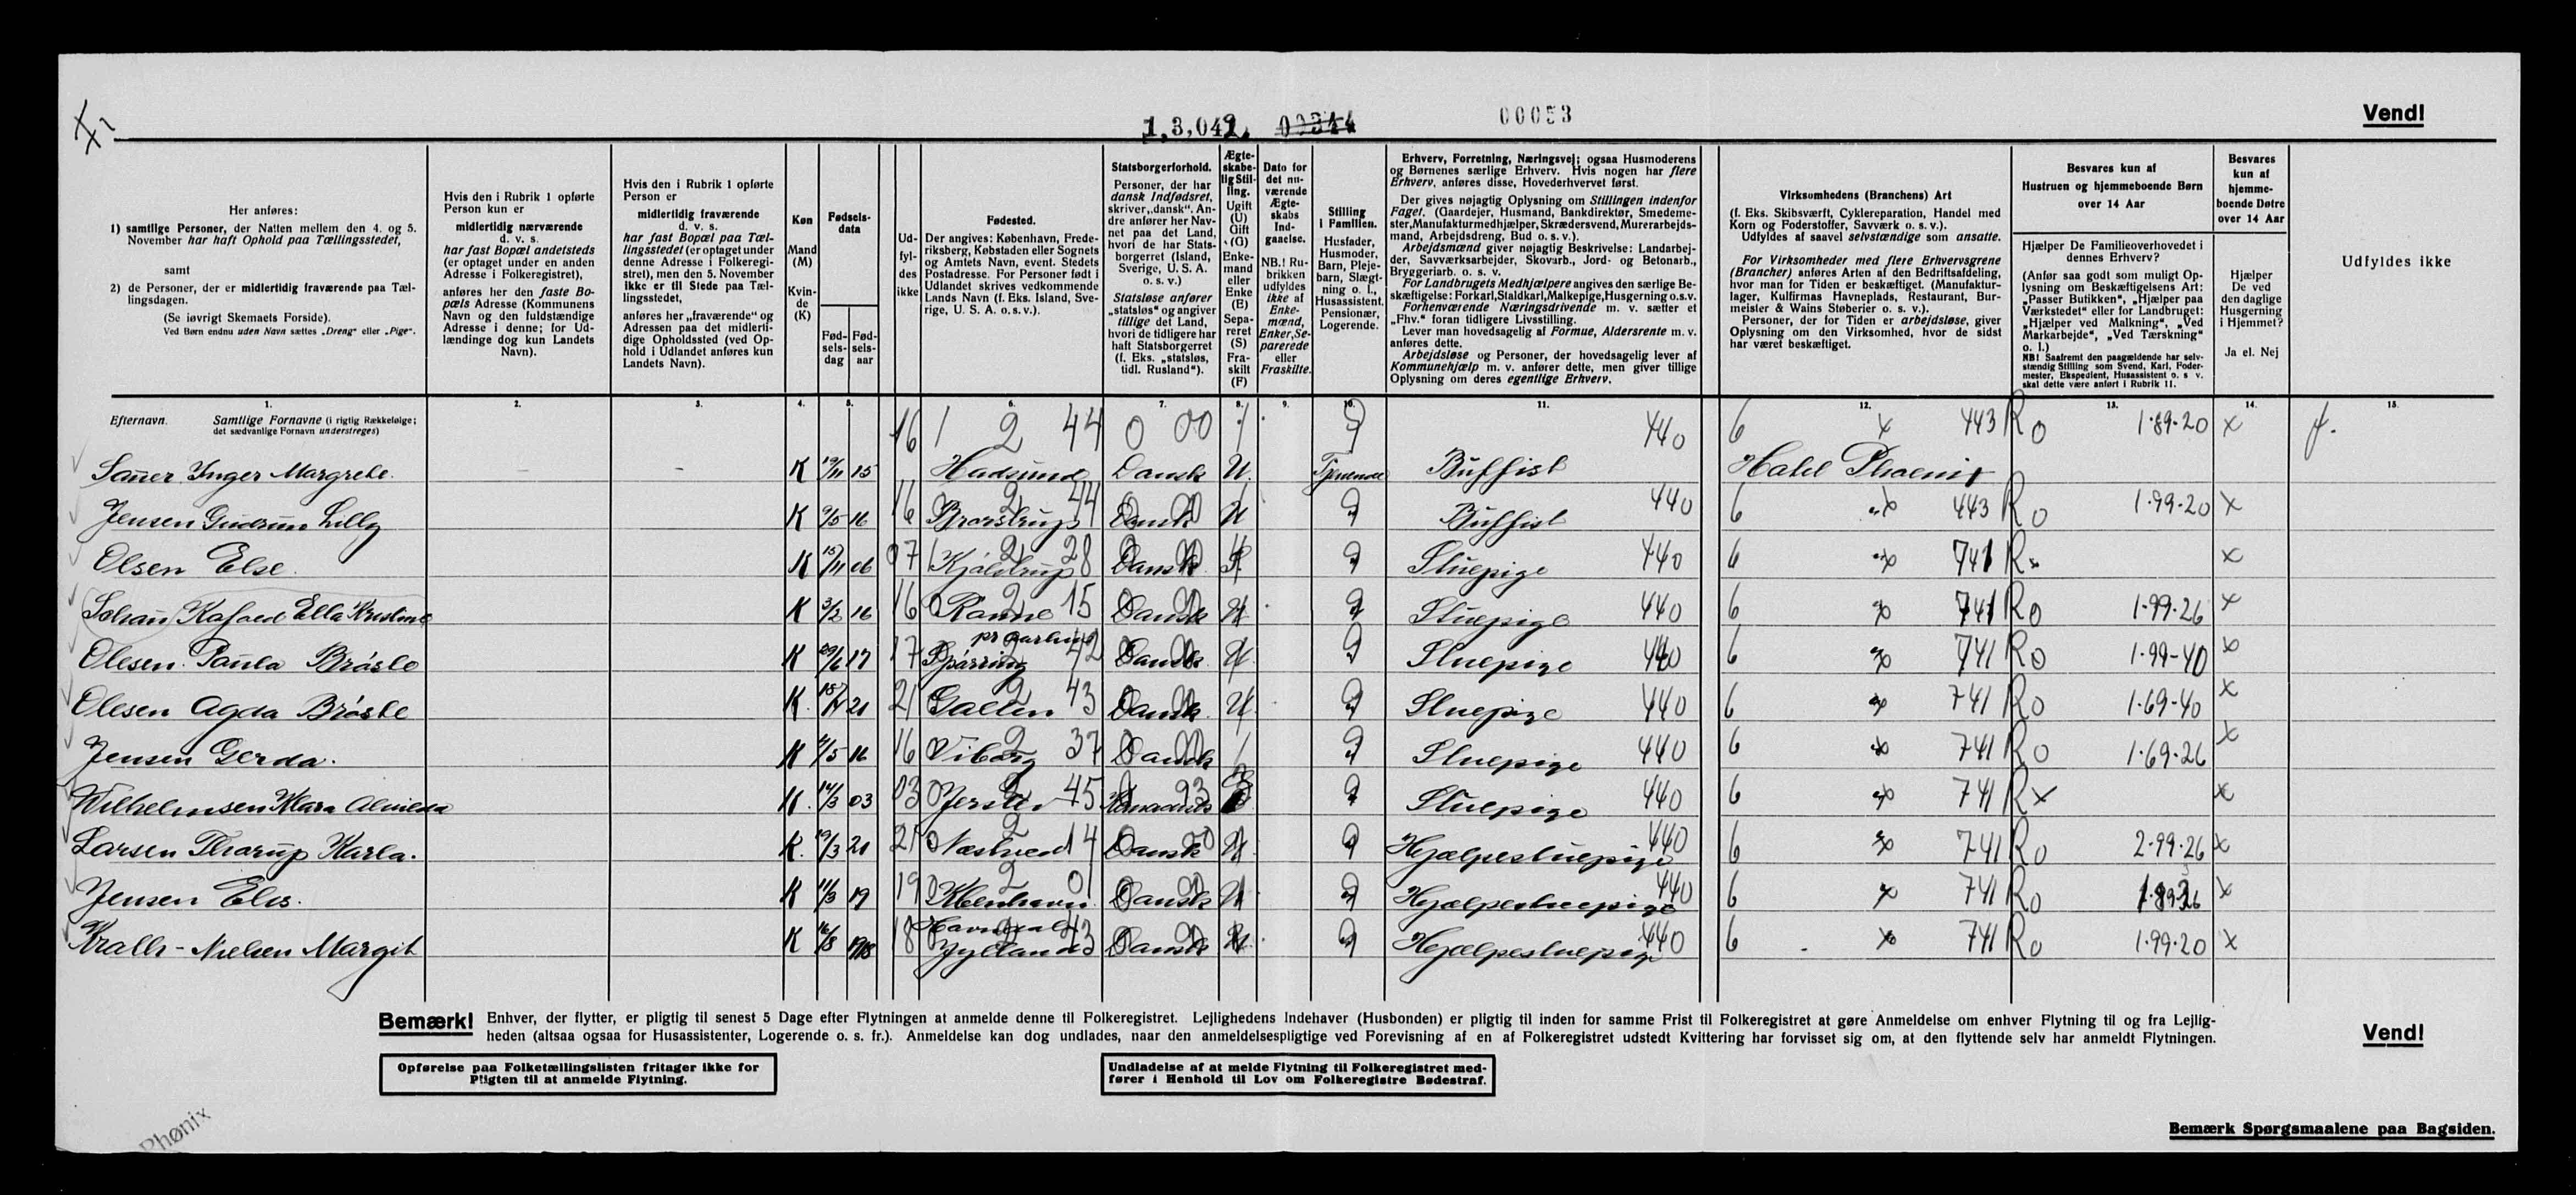 1,3,042. 00344 00053 Vend!
Her anføres:
1) samtlige Personer, der Natten mellem den 4. og 5.
November har haft Ophold paa Tællingsstedet,
samt
2) de Personer, der er midlertidig fraværende paa Tæl-
lingsdagen.
(Se iøvrigt Skemaets Forside).
Ved Børn endnu uden Navn sættes „Dreng“ eller „Pige“.
Hvis den i Rubrik 1 opførte
Person kun er
midlertidig nærværende
d. v. s.
har fast Bopæl andetsteds
(er optaget under en anden
Adresse i Folkeregistret),
anføres her den faste Bo-
pæls Adresse (Kommunens
Navn og den fuldstændige
Adresse i denne; for Ud-
lændinge dog kun Landets
Navn).
Hvis den i Rubrik 1 opførte
Person er
midlertidig fraværende
d. v. s.
har fast Bopæl paa Tæl-
lingsstedet (er optaget under
denne Adresse i Folkeregi-
stret), men den 5. November
ikke er til Stede paa Tæl-
lingsstedet,
anføres her „fraværende“ og
Adressen paa det midlerti-
dige Opholdssted (ved Op-
hold i Udlandet anføres kun
Landets Navn).
Køn
Mand
(M)
Kvin-
de
(K)
Fødsels-
data
Fød-
sels-
dag
Fød-
sels-
aar
Ud-
fyl-
des
ikke
Fødested.
Der angives: København, Frede-
riksberg, Købstaden eller Sognets
og Amtets Navn, event. Stedets
Postadresse. For Personer født i
Udlandet skrives vedkommende
Lands Navn (f. Eks. Island, Sve-
rige, U. S. A. o. s. v.).
Statsborgerforhold.
Personer, der har
dansk Indfødsret,
skriver „dansk“. An-
dre anfører her Nav-
net paa det Land,
hvori de har Stats-
borgerret (Island,
Sverige, U. S. A.
o. s. v.)
Statsløse anfører
„statsløs“ og angiver
tillige det Land,
hvori de tidligere har
haft Statsborgerret
(f. Eks. „statsløs,
tidl. Rusland“).
Ægte-
skabe-
lig Stil-
ling.
Ugift
(U)
Gift
(G)
Enke-
mand
eller
Enke
(E)
Sepa-
reret
(S)
Fra-
skilt
(F)
Dato for
det nu-
værende
Ægte-
skabs
Ind-
gaaelse.
NB.! Ru-
brikken
udfyldes
ikke af
Enke-
mænd,
Enker, Se-
parerede
eller
Fraskilte.
Stilling
i Familien.
Husfader,
Husmoder,
Barn, Pleje-
barn, Slægt-
ning o. l.,
Husassistent,
Pensionær,
Logerende.
Erhverv, Forretning, Næringsvej; ogsaa Husmoderens
og Børnenes særlige Erhverv. Hvis nogen har flere
Erhverv, anføres disse, Hovederhvervet først.
Der gives nøjagtig Oplysning om Stillingen indenfor
Faget. (Gaardejer, Husmand, Bankdirektør, Smedeme-
ster, Manufakturmedhjælper, Skrædersvend, Murerarbejds-
mand, Arbejdsdreng, Bud o. s. v.).
Arbejdsmænd giver nøjagtig Beskrivelse: Landarbej-
der, Savværksarbejder, Skovarb., Jord- og Betonarb.,
Bryggeriarb. o. s. v.
For Landbrugets Medhjælpere angives den særlige Be-
skæftigelse: Forkarl, Staldkarl, Malkepige, Husgerning o.s.v.
Forhenværende Næringsdrivende m. v. sætter et
„Fhv.“ foran tidligere Livsstilling.
Lever man hovedsagelig af Formue, Aldersrente m. v.
anføres dette.
Arbejdsløse og Personer, der hovedsagelig lever af
Kommunehjælp m. v. anfører dette, men giver tillige
Oplysning om deres egentlige Erhverv.
Virksomhedens (Branchens) Art
(f. Eks. Skibsværft, Cyklereparation, Handel med
Korn og Foderstoffer, Savværk o. s. v.).
Udfyldes af saavel selvstændige som ansatte.
For Virksomheder med flere Erhvervsgrene
(Brancher) anføres Arten af den Bedriftsafdeling,
hvor man for Tiden er beskæftiget. (Manufaktur-
lager, Kulfirmas Havneplads, Restaurant, Bur-
meister & Wains Støberier o. s. v.).
Personer, der for Tiden er arbejdsløse, giver
Oplysning om den Virksomhed, hvor de sidst
har været beskæftiget.
Besvares kun af
Hustruen og hjemmeboende Børn
over 14 Aar
Hjælper De Familieoverhovedet i
dennes Erhverv?
(Anfør saa godt som muligt Op-
lysning om Beskæftigelsens Art:
„Passer Butikken“, „Hjælper paa
Værkstedet“ eller for Landbruget:
„Hjælper ved Malkning“, „Ved
Markarbejde“, „Ved Tærskning“
o. l.)
NB! Saafremt den paagældende har selv-
stændig Stilling som Svend, Karl, Foder-
mester, Ekspedient, Husassistent o. s. v.
skal dette være anført i Rubrik 11.
Besvares
kun af
hjemme-
boende Døtre
over 14 Aar
Hjælper
De ved
den daglige
Husgerning
i Hjemmet?
Ja el. Nej
Udfyldes ikke
1. 2. 3. 4. 5. 6. 7. 8. 9. 10. 11. 12. 13. 14. 15.
Efternavn. Samtlige Fornavne (i rigtig Rækkefølge;
det sædvanlige Fornavn understreges)
16 1 2 44 0 00 1 9 440 6 x 443 Ro 1-89-20 x f.
Sauer Inger Margrethe. K 19/11 15 Hadsund Dansk U. Tjenende Buffist Hotel Phoenix
Jensen Gudrun Lilly K 9/5 16 16 Brorstrup 2 44 Dansk U 9 Buffist 440 6 x 443 Ro 1-99-20 x
Olsen Else. K 15/11 06 07 Kjølstrup 2 28 Dansk 9 Stuepige 440 6 x 741 Rx x
Kofoed Ella Kristine K 3/2 16 16 Rønne 2 15 Dansk U 9 Stuepige 440 6 x 741 Ro 1-99-26 x
Olesen Paula Brøsle K 29/6 17 17 Spørring 42 Dansk U 9 Stuepige 440 6 x 741 Ro 1-99-40 x
Olesen Agda Brøsle K. 21 21 Galten 2 43 Dansk U 9 Stuepige 440 6 x 741 Ro 1-69-40 x
Jensen Gerda. K 4/5 16 16 Viborg 2 37 Dansk 9 Stuepige 440 6 x 741 Ro 1-69-26 x
Wilhelmsen Klara Almeda K. 14/3 03 03 Jerslev 2 45 93 9 Stuepige 440 6 x 741 Rx x
Larsen Tharup Karla. K. 19/3 21 21 Næstved 2 14 Dansk U 9 Hjælpestuepige 440 6 x 741 Ro 2-99-26 x
Jensen Elis. K 11/3 19 19 København 2 01 Dansk U 9 Hjælpestuepige 440 6 x 741 Ro x
Kralh-Nielsen Margit K 16/8 1918 18 Jylland 43 Dansk U 9 Hjælpestuepige 440 6 x 741 Ro 1-99-20 x
Bemærk! Enhver, der flytter, er pligtig til senest 5 Dage efter Flytningen at anmelde denne til Folkeregistret. Lejlighedens Indehaver (Husbonden) er pligtig til inden for samme Frist til Folkeregistret at gøre Anmeldelse om enhver Flytning til og fra Lejlig-
heden (altsaa ogsaa for Husassistenter, Logerende o. s. fr.). Anmeldelse kan dog undlades, naar den anmeldelsespligtige ved Forevisning af en af Folkeregistret udstedt Kvittering har forvisset sig om, at den flyttende selv har anmeldt Flytningen.
Vend!
Opførelse paa Folketællingslisten fritager ikke for
Pligten til at anmelde Flytning.
Undladelse af at melde Flytning til Folkeregistret med-
fører i Henhold til Lov om Folkeregistre Bødestraf.
Phønix
Bemærk Spørgsmaalene paa Bagsiden.